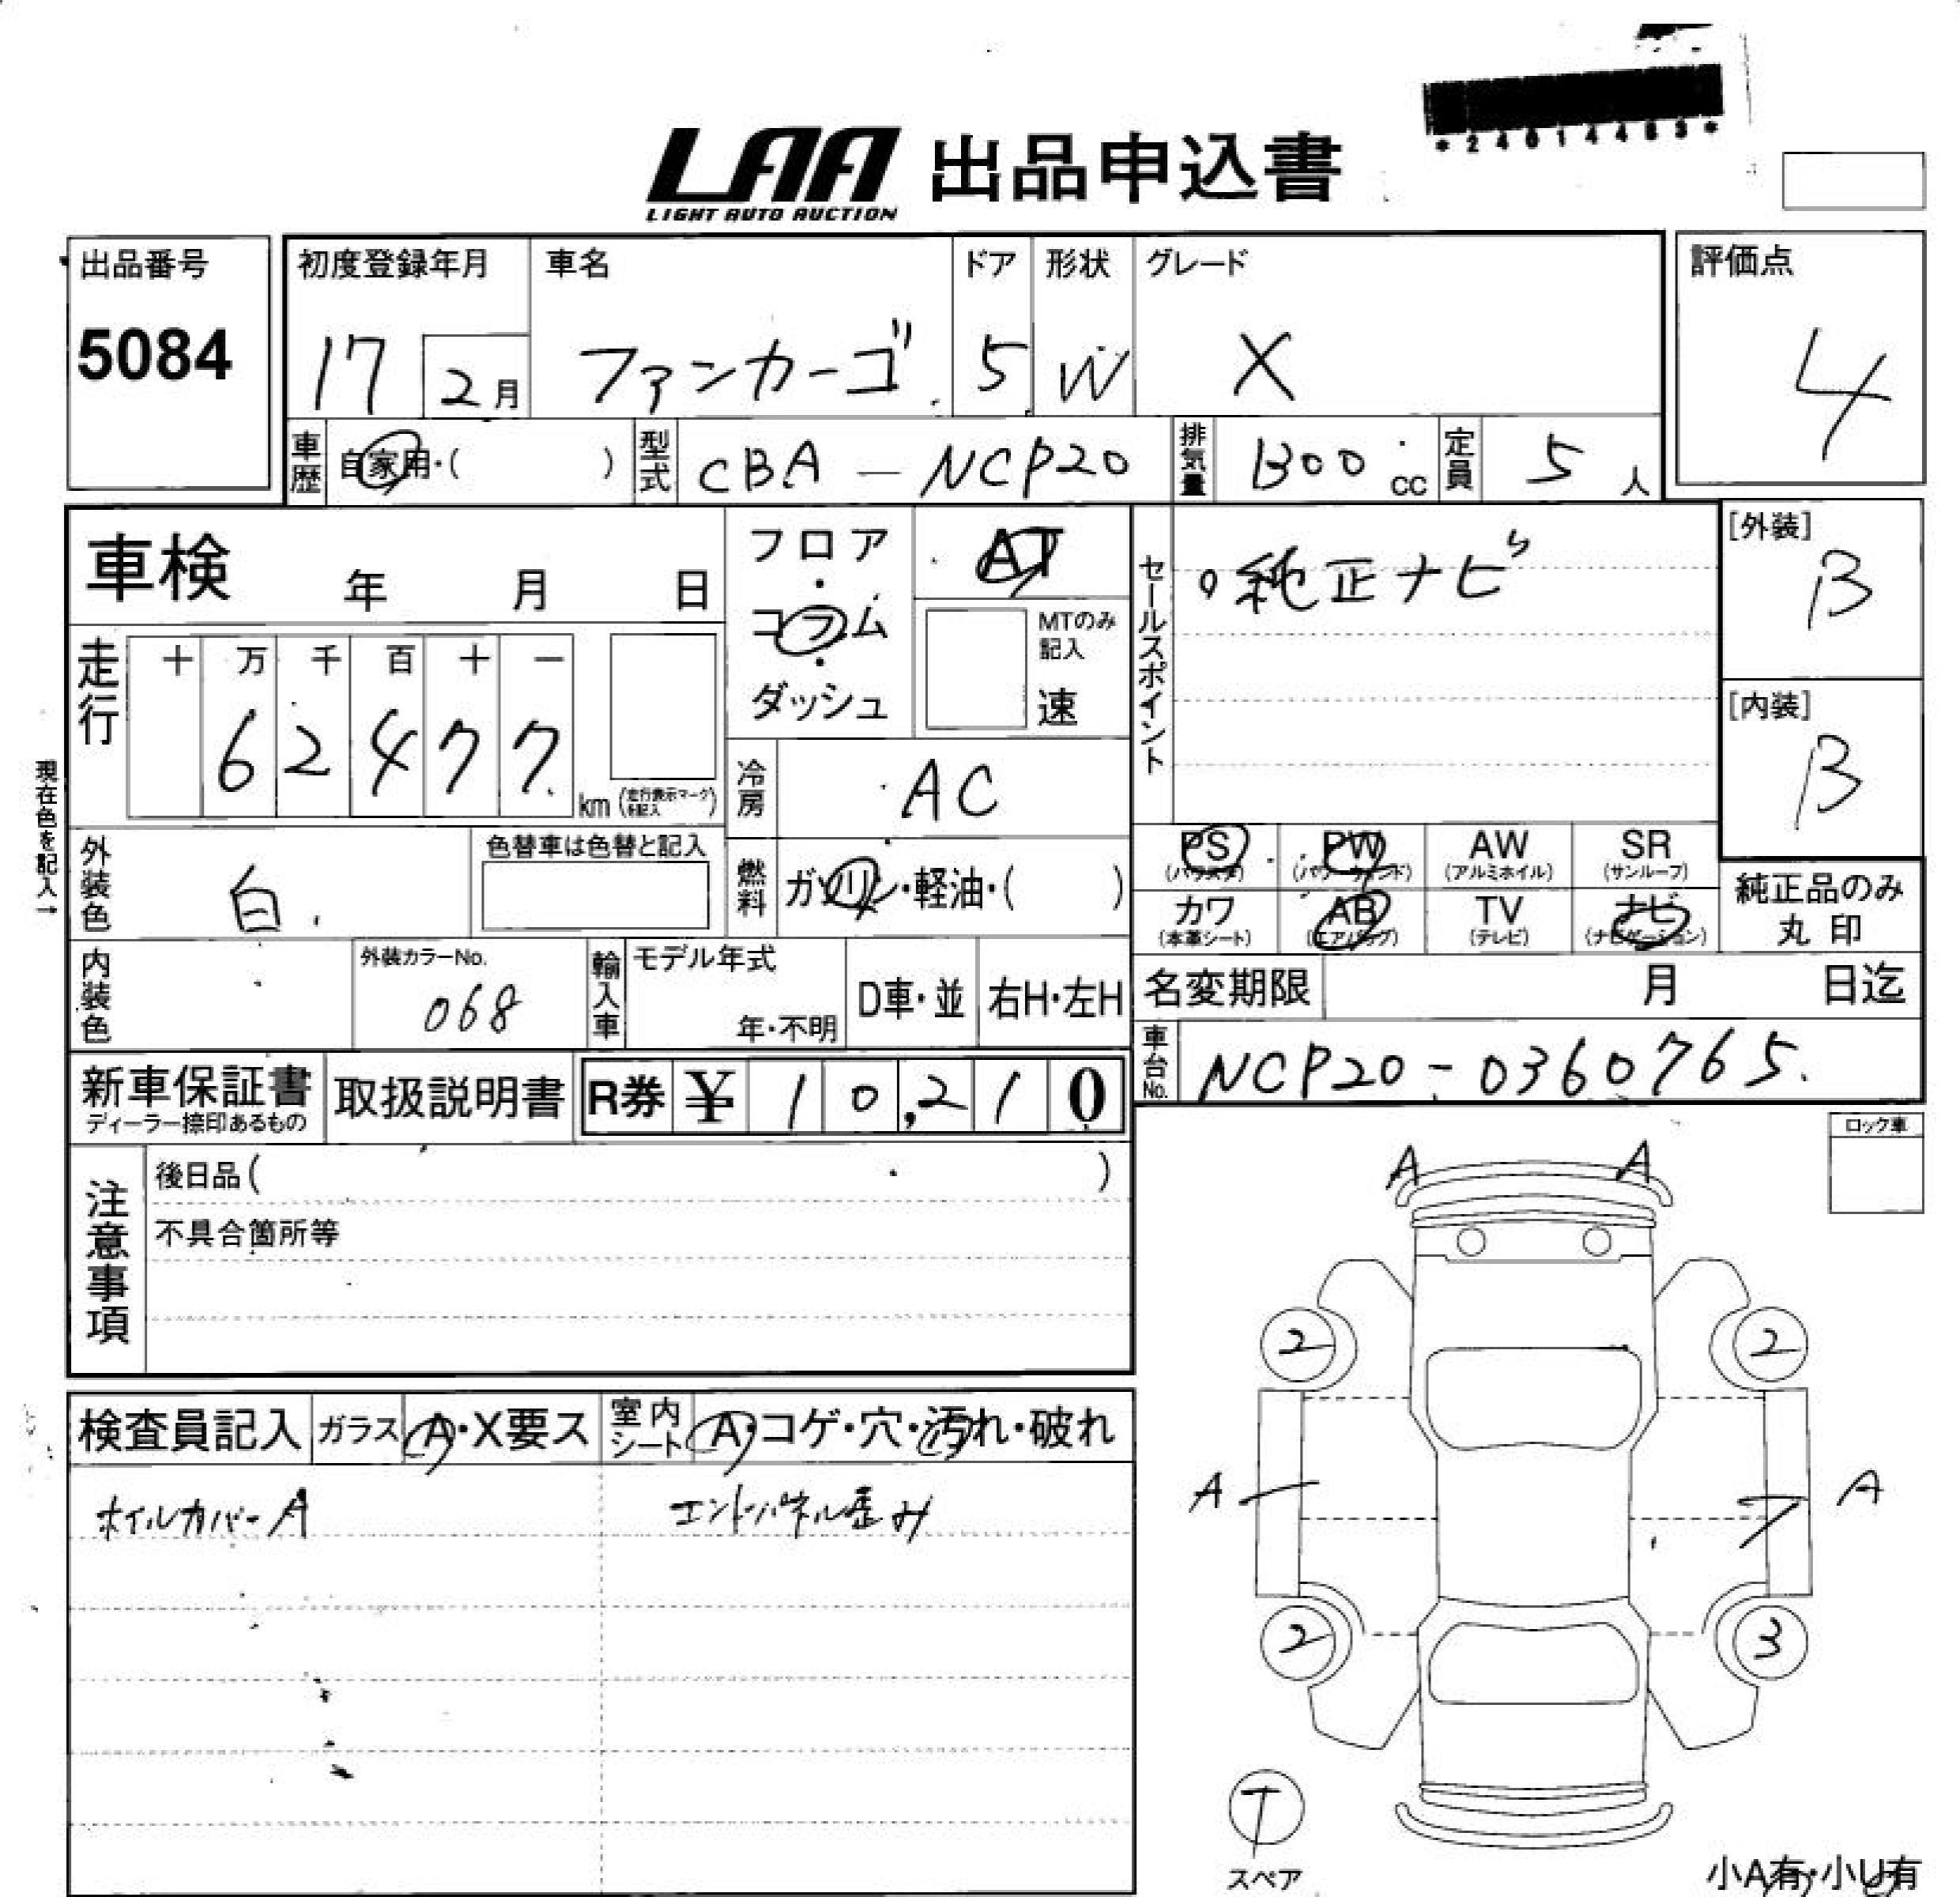 *24014485*
LAA 出品申込書
LIGHT AUTO AUCTION
出品番号 初度登録年月 車名 ドア 形状 グレード 評価点
5084 17 2月 ファンカーゴ 5 W X 4
車歴 自家用・( ) 型式 CBA-NCP20 排気量 1300 cc 定員 5 人
車検 年 月 日
フロア・コラム・ダッシュ
AT
MTのみ記入
速
セールスポイント
○純正ナビ
[外装]
B
[内装]
B
走行 十 万 千 百 十 一
6 2 4 7 7
km (走行表示マークを記入)
冷房 AC
現在色を記入→
外装色 白.
色替車は色替と記入
燃料 ガソリン・軽油・( )
PS (パワステ) PW (パワーウィンド) AW (アルミホイル) SR (サンルーフ)
カワ (本革シート) AB (エアバッグ) TV (テレビ) ナビ (ナビゲーション)
純正品のみ
丸印
内装色
外装カラーNo.
068
輸入車 モデル年式
年・不明
D車・並 右H・左H
名変期限 月 日迄
車台No. NCP20-0360765.
新車保証書
ディーラー捺印あるもの
取扱説明書 R券 ¥ 10,210
注意事項
後日品( )
不具合箇所等
ロック車
A A
2 2
A A
2 3
T
スペア
小A有・小U有
検査員記入 ガラス A・X要ス 室内シート A・コゲ・穴・汚れ・破れ
ホイルカバーA エンドパネル歪み